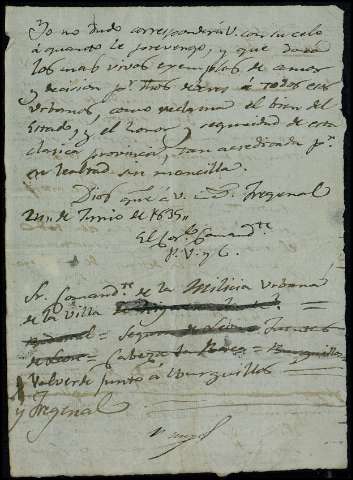 Yo no dudo corresponderá V. con su celo
á quanto le prevengo, y que dará
los mas vivos exemplos de amor
y decision á todos esos
Urbanos, como reclama el bien del
Estado, y el honor y seguridad de esta
clasica provincia, tan acredidada pr.
su lealtad sin mancilla.
Dios gue á V. Fregenal
de Junio de 1835,,
El Comandte
P. V. y G.
Sr. Comandte de la Milicia Urbana
de la Villa
= Segura de Leon = Fuentes
de Leon = Cabeza la Baca = Burguillos
Valverde junto á Burguillos
y Fregenal